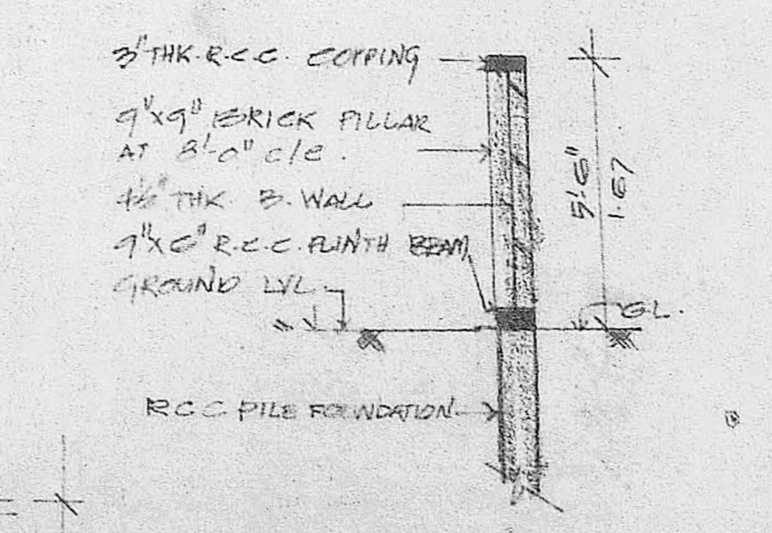 3" THK. R.C.C. COPPING
9"X9" BRICK PILLAR
AT 8'-0" C/C.
4½" THK B. WALL
9"X6" R.C.C. PLINTH BEAM
GROUND LVL.
RCC PILE FOUNDATION
5'-6"
1.67
G.L.